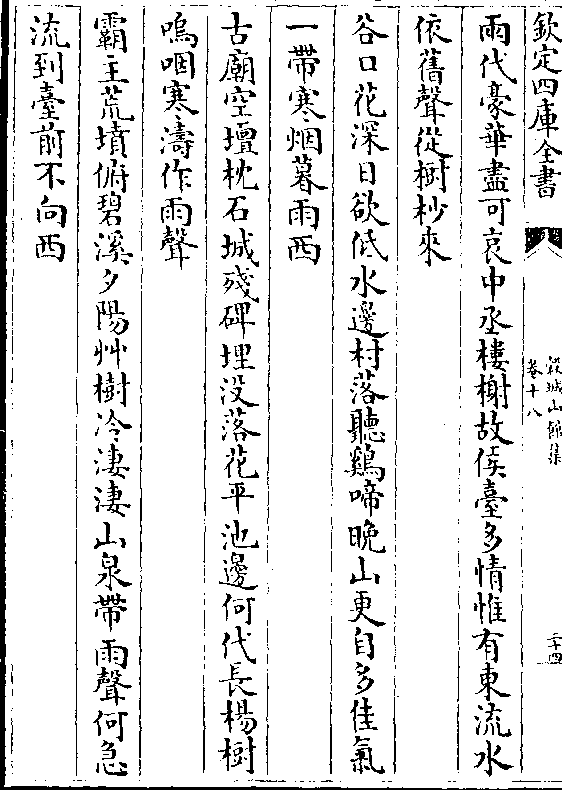 欽定四庫全書
穀城山館集
卷十八
二十四
兩代豪華盡可哀中丞樓榭故侯臺多情惟有東流水
依舊聲從樹杪來
谷口花深日欲低水邊村落聽鷄啼晚山更自多佳氣
一帶寒烟暮雨西
古廟空壇枕石城殘碑埋没落花平池邊何代長楊樹
嗚咽寒濤作雨聲
霸主荒墳俯碧溪夕陽艸樹冷淒淒山泉帶雨聲何急
流到臺前不向西